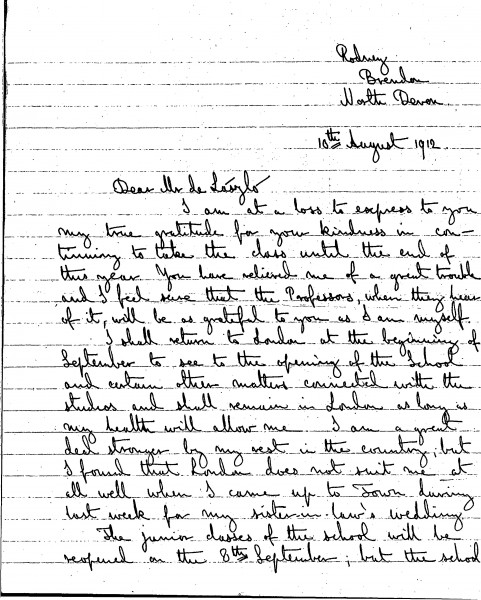 Rodney
Brendon
North Devon
10th August 1912
Dear Mr de László
I am at a loss to express to you
my true gratitude for your kindness in con-
tinuing to take the class until the end of
this year. You have relieved me of a great trouble
and I feel sure that the Professors, when they hear
of it, will be as grateful to you as I am myself.
I shall return to London at the beginning of
September to see to the opening of the School
and certain other matters connected with the
studios and shall remain in London as long as
my health will allow me. I am a great
deal stronger by my rest in the country, but
I found that London does not suit me at
all well when I came up to Town during
last week for my sister-in-law's wedding
The junior classes of the school will be
reopened on the 8th September; but the school